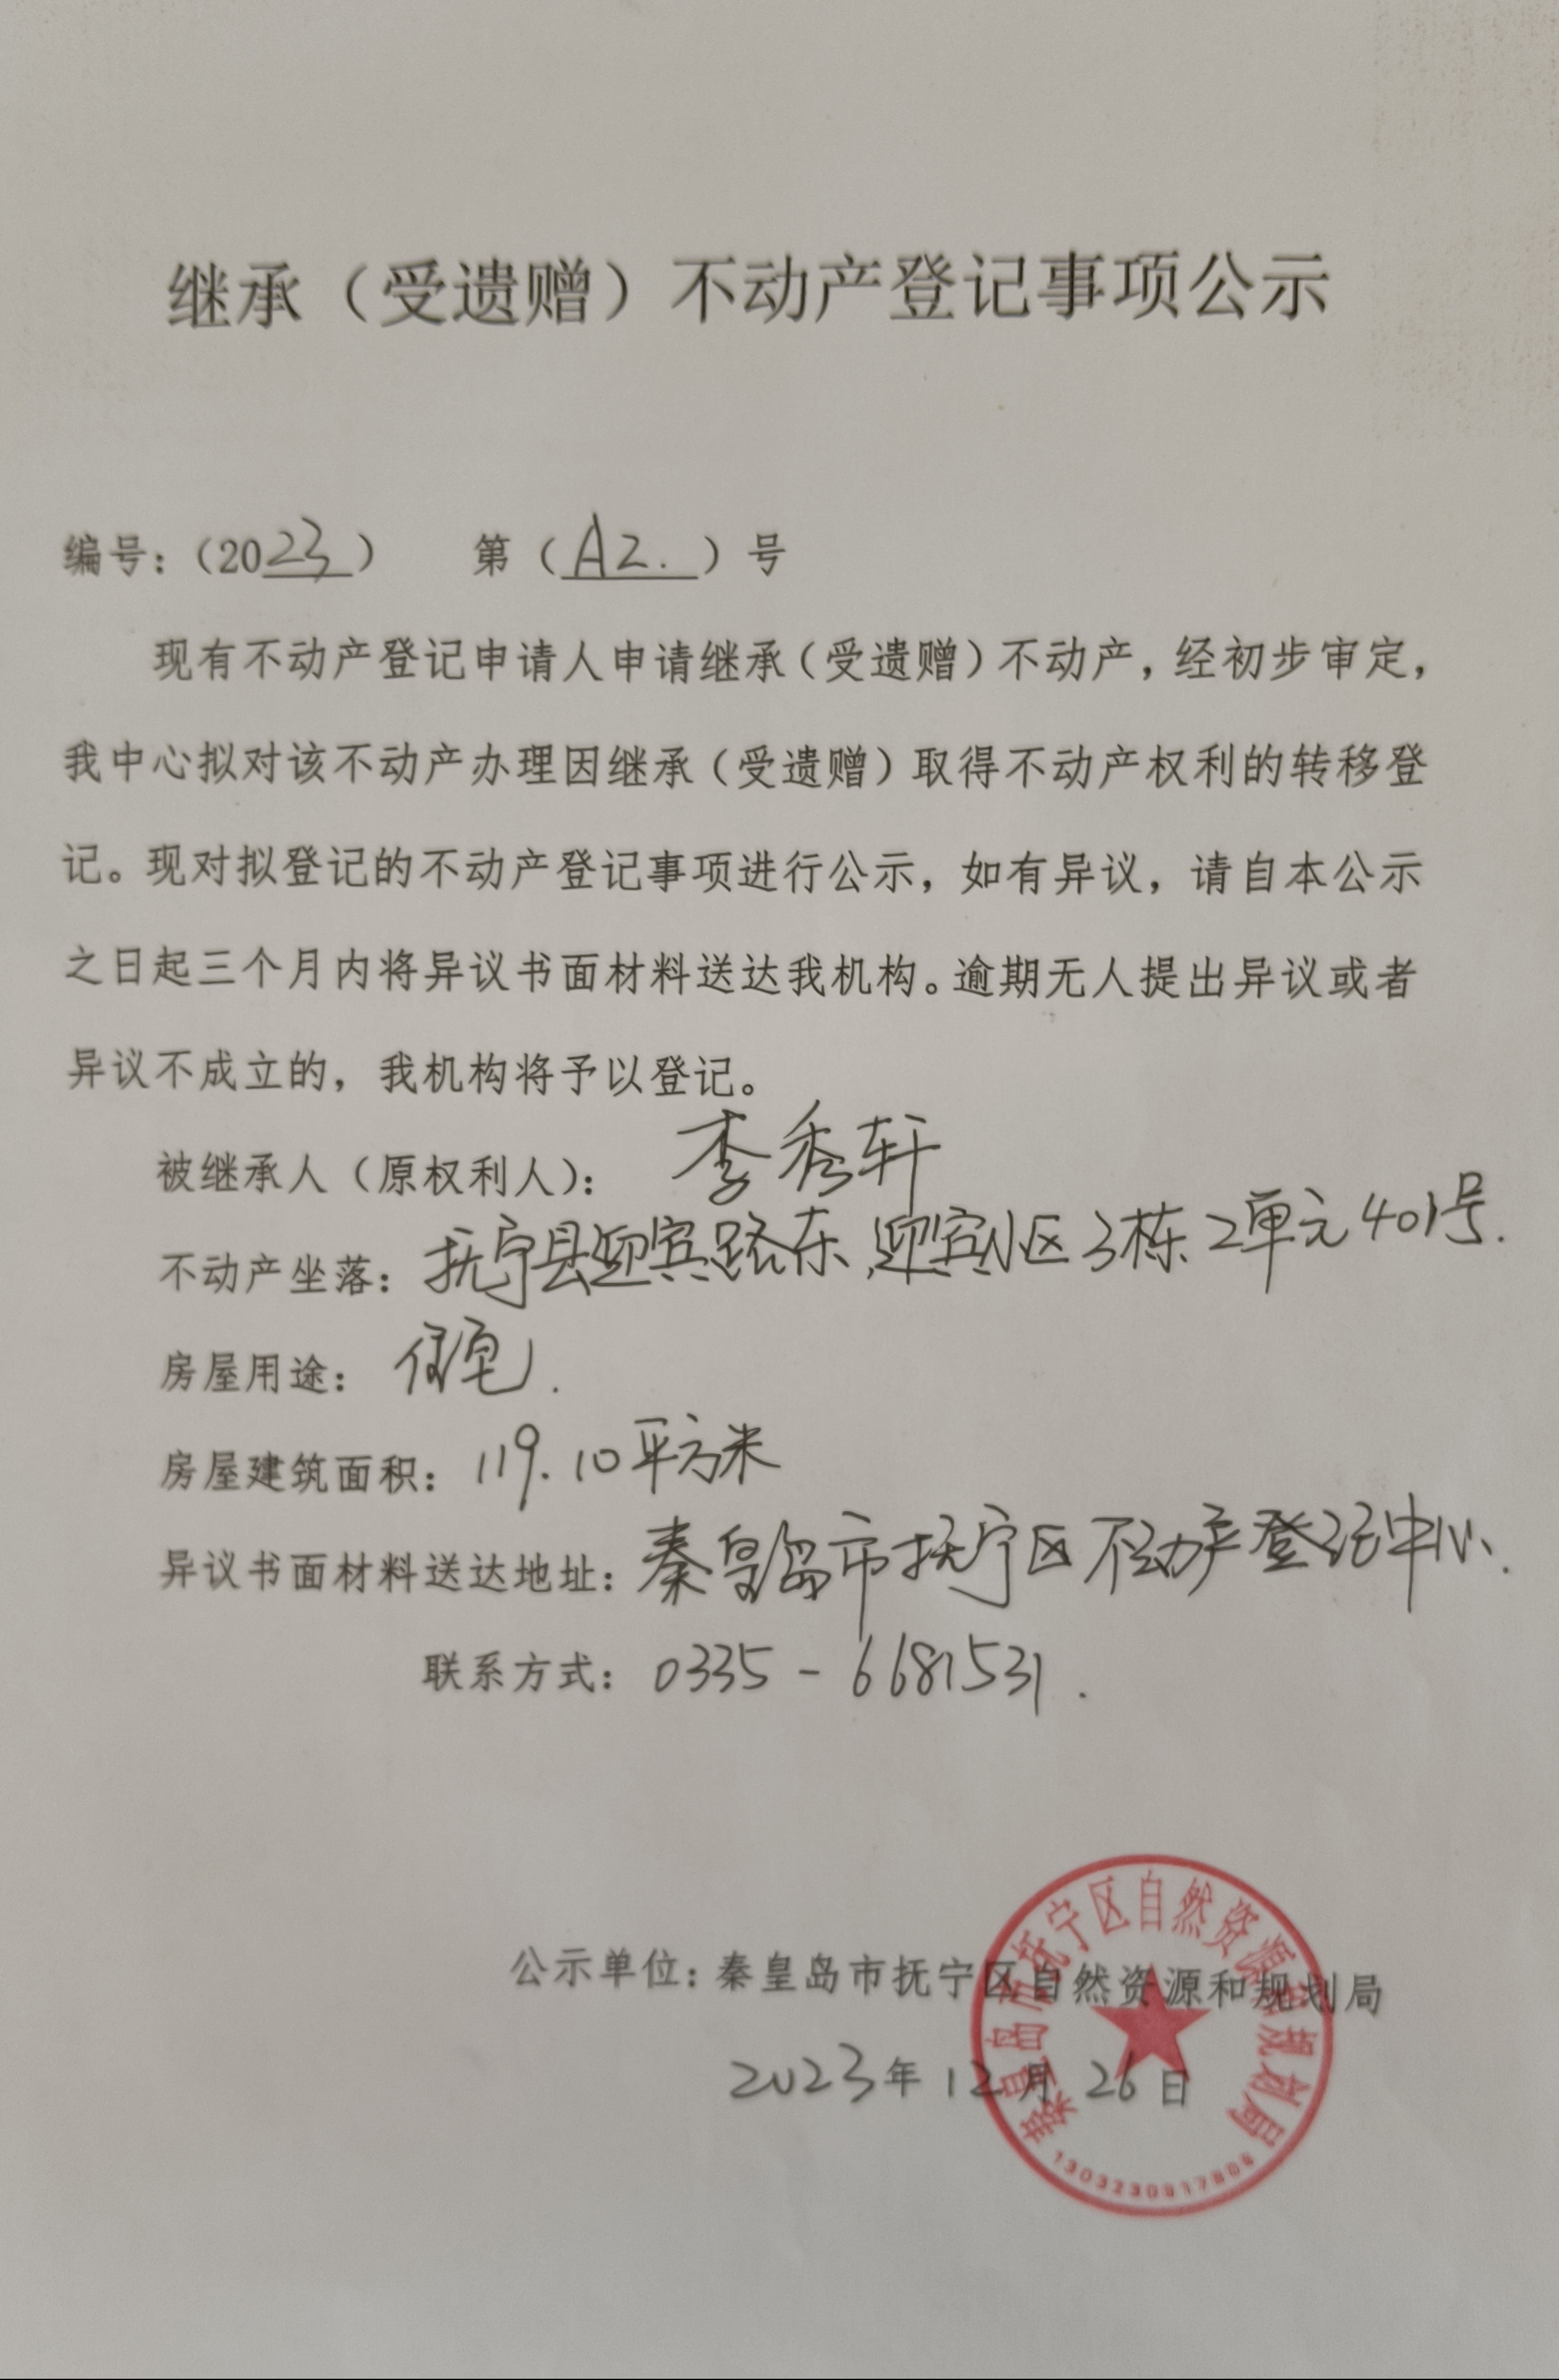 继承（受遗赠）不动产登记事项公示
编号：（2023） 第（A2.）号
现有不动产登记申请人申请继承（受遗赠）不动产，经初步审定，
我中心拟对该不动产办理因继承（受遗赠）取得不动产权利的转移登
记。现对拟登记的不动产登记事项进行公示，如有异议，请自本公示
之日起三个月内将异议书面材料送达我机构。逾期无人提出异议或者
异议不成立的，我机构将予以登记。
被继承人（原权利人）： 李秀轩
不动产坐落：抚宁县迎宾路东,迎宾小区3栋2单元401号.
房屋用途：住宅.
房屋建筑面积：119.10平方米
异议书面材料送达地址：秦皇岛市抚宁区不动产登记中心.
联系方式：0335-6681531.
公示单位：秦皇岛市抚宁区自然资源和规划局
2023年12月26日
秦皇岛市抚宁区自然资源和规划局